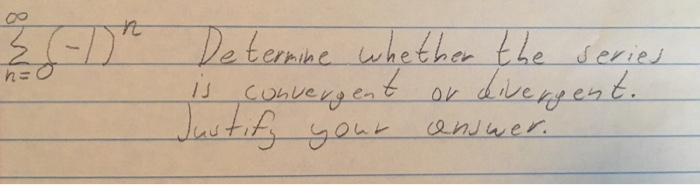 ∞
Σ (-1)ⁿ Determine whether the series
n=0 is convergent or divergent.
Justify your answer.